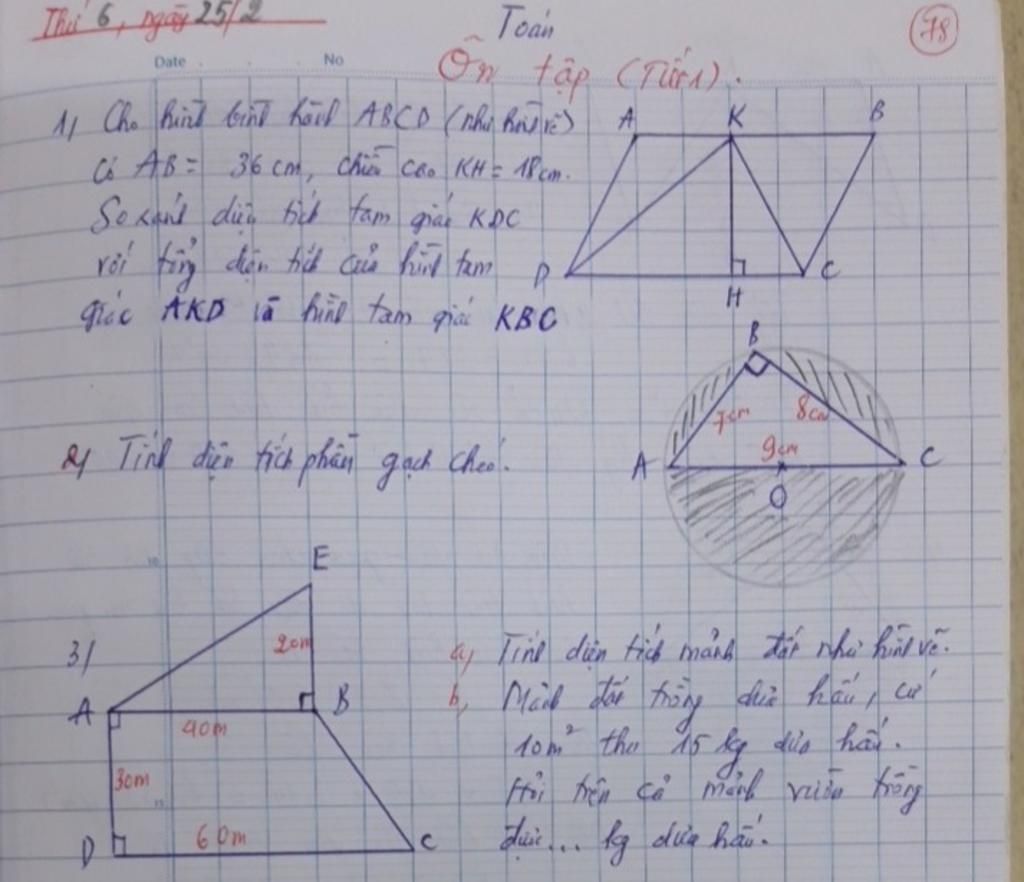 Thứ 6, ngày 25/2
Toán
78
Date No
Ôn tập (Tiết 1).
1) Cho hình bình hành ABCD (như hình vẽ)
Có AB = 36 cm, chiều cao KH = 18cm.
So sánh diện tích tam giác KDC
với tổng diện tích của hình tam
giác AKD và hình tam giác KBC
A K B
D H C
2) Tính diện tích phần gạch chéo.
B
7cm 8cm
A 9cm C
O
3)
E
20m
A B
40m
30m
D 60m C
a, Tính diện tích mảnh đất như hình vẽ.
b, Mảnh đất trồng dưa hấu, cứ
10m² thu 15 kg dưa hấu.
Hỏi trên cả mảnh vườn trồng
được... kg dưa hấu.